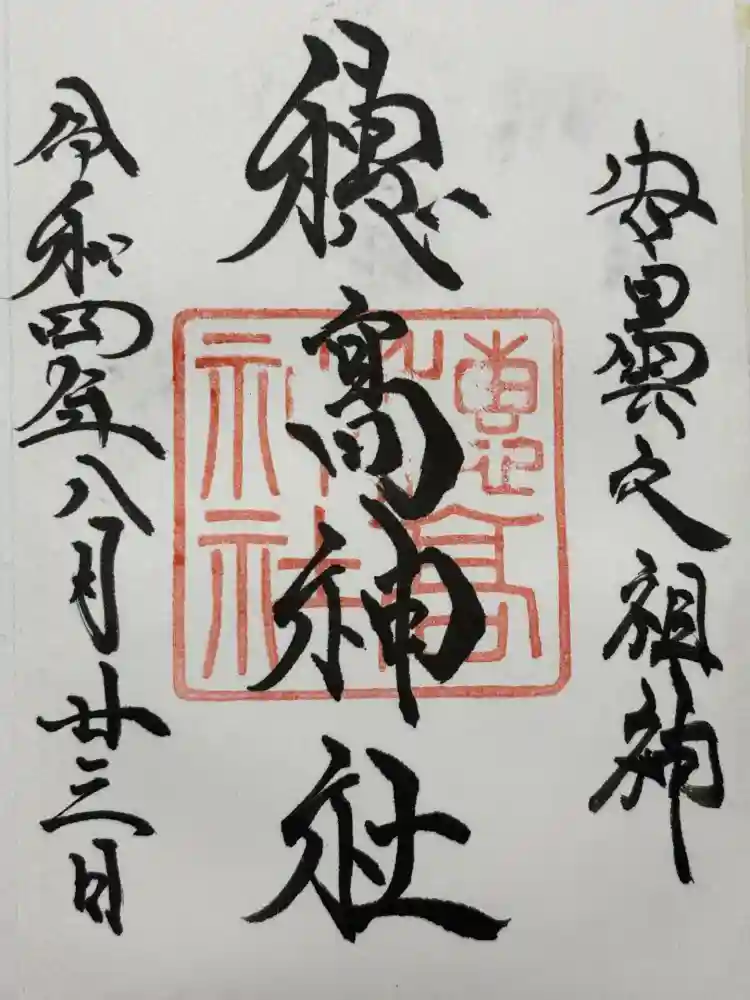 安曇野之祖神
穂高神社
穂高神社
令和四年八月廿三日